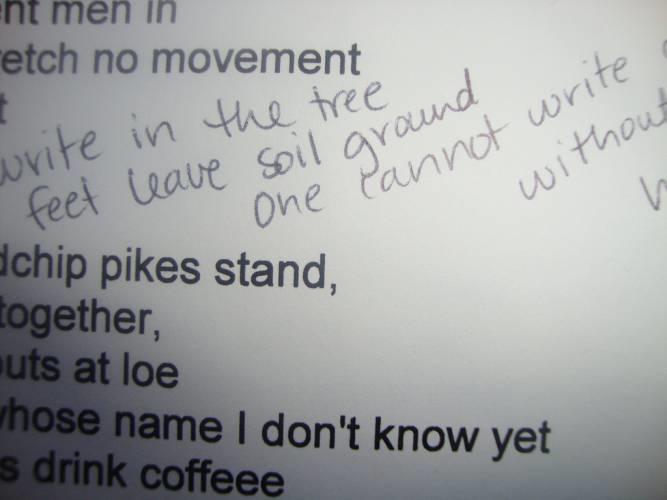 ent men in
etch no movement
t
write in the tree
feet leave soil ground
one cannot write
without
dchip pikes stand,
together,
outs at loe
whose name I don't know yet
s drink coffeee